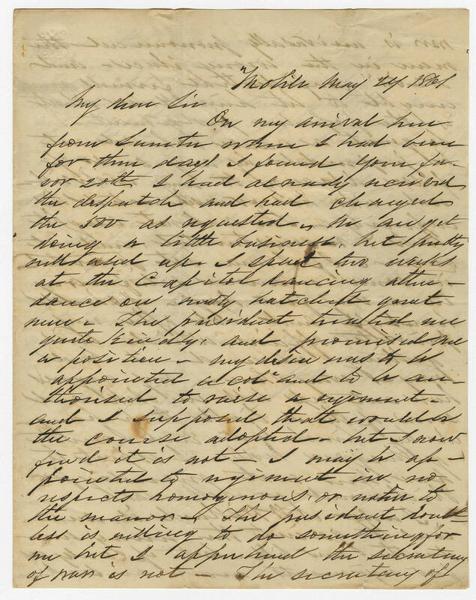 Mobile May 24 1861
My dear Sir
On my arrival here
from Sumter where I had been
for three days I found your fa-
vor 20th. I had already received
the dispatch and had charged
the 500 as requested. We are yet
doing a little business, but pretty
well used up. I spent two weeks
at the Capitol dancing atten-
dance on newly hatched great
men. The president treated me
quite kindly, and promised me
a position – my desire was to be
appointed a col and to be au-
thorised to raise a regiment.
and I supposed that would be
the course adopted – but I now
find it is not – I may be ap-
pointed to regiment in no
respects homogenous, or native to
the manor – The president doubt-
less is willing to do something for
me but I apprehend the secretary
of war is not – The secretary of